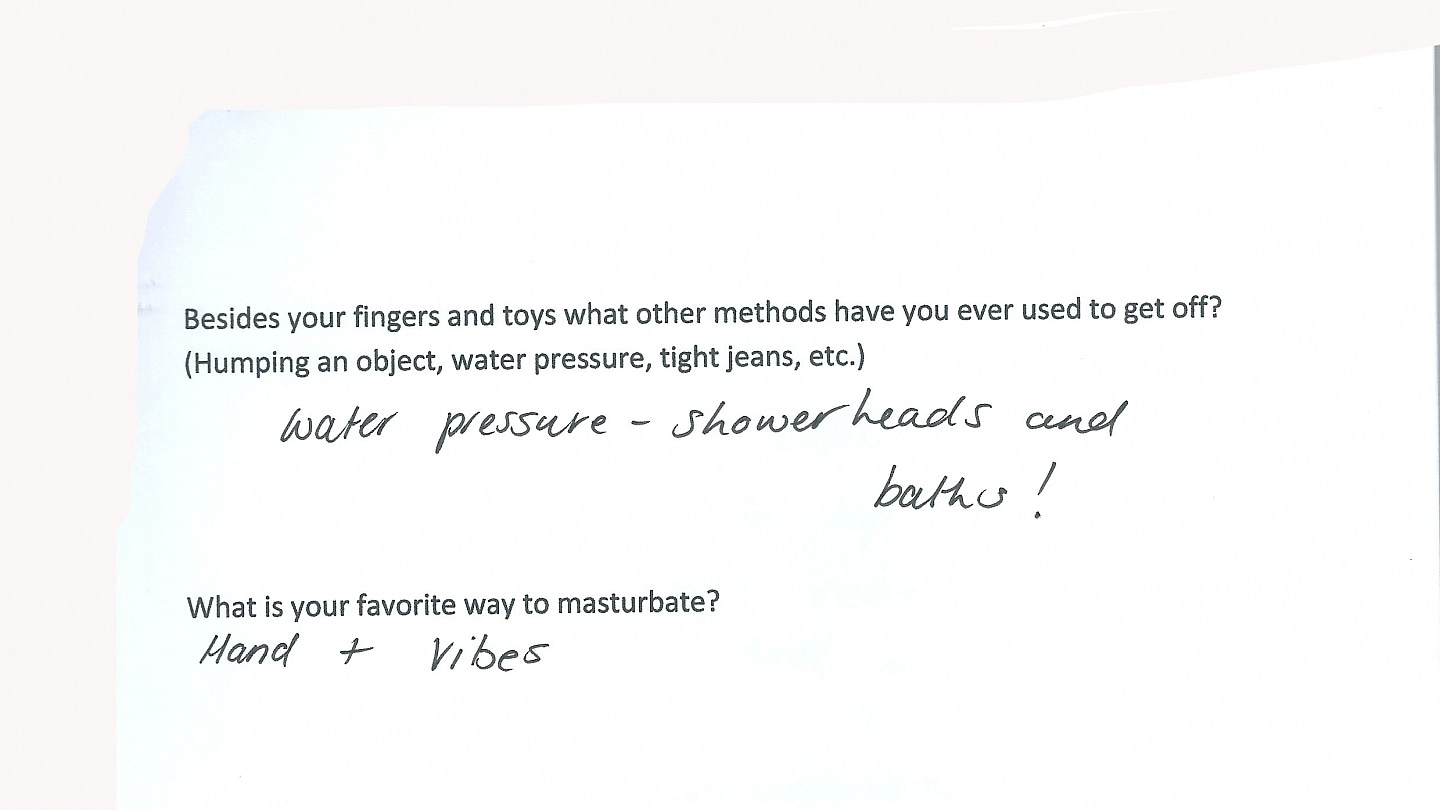 Besides your fingers and toys what other methods have you ever used to get off?
(Humping an object, water pressure, tight jeans, etc.)
water pressure - showerheads and
baths!
What is your favorite way to masturbate?
Hand + Vibes